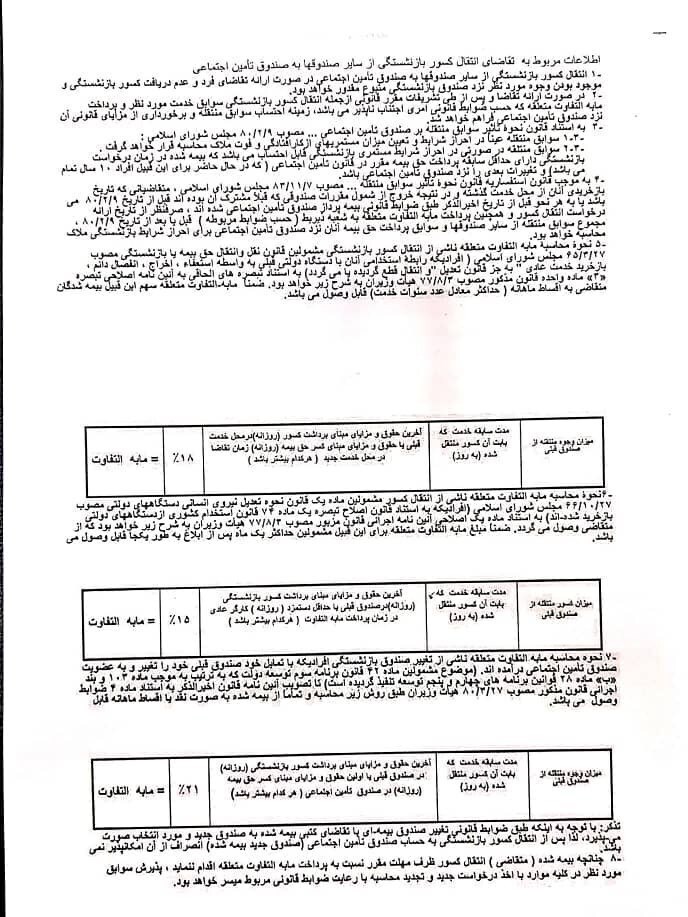 اطلاعات مربوط به تقاضای انتقال کسور بازنشستگی از سایر صندوقها به صندوق تأمین اجتماعی
۱- انتقال کسور بازنشستگی از سایر صندوقها به صندوق تأمین اجتماعی در صورت ارائه تقاضای فرد و عدم دریافت کسور بازنشستگی و
موجود بودن وجوه مورد نظر نزد صندوق بازنشستگی متبوع مقدور خواهد بود.
۲- در صورت ارائه تقاضا و پس از طی تشریفات مقرر قانونی ازجمله انتقال کسور بازنشستگی سوابق خدمت مورد نظر و پرداخت
مابه التفاوت متعلقه که حسب ضوابط قانونی امری اجتناب ناپذیر می باشد، زمینه احتساب سوابق منتقله و برخورداری از مزایای قانونی آن
نزد صندوق تأمین اجتماعی فراهم خواهد شد.
۳- به استناد قانون نحوه تأثیر سوابق منتقله بر صندوق تأمین اجتماعی ... مصوب ۸۰/۲/۹ مجلس شورای اسلامی :
۳-۱- سوابق منتقله عیناً در احراز شرایط و تعیین میزان مستمریهای ازکارافتادگی و فوت ملاک محاسبه قرار خواهد گرفت .
۳-۲- سوابق منتقله در صورتی در احراز شرایط مستمری بازنشستگی قابل احتساب می باشد که بیمه شده در زمان درخواست
بازنشستگی دارای حداقل سابقه پرداخت حق بیمه مقرر در قانون تأمین اجتماعی ( که در حال حاضر برای این قبیل افراد ۱۰ سال تمام
می باشد) و تغییرات بعدی را نزد صندوق تأمین اجتماعی باشد.
۴- به موجب قانون استفساریه قانون نحوه تأثیر سوابق منتقله ... مصوب ۸۳/۱۱/۷ مجلس شورای اسلامی ، متقاضیانی که تاریخ
بازخریدی آنان از محل خدمت گذشته و در نتیجه خروج از شمول مقررات صندوقی که قبلا مشترک آن بوده اند قبل از تاریخ ۸۰/۲/۹ می
باشد یا به هر نحو قبل از تاریخ اخیرالذکر طبق ضوابط قانونی بیمه پرداز صندوق تأمین اجتماعی شده اند ، صرفنظر از تاریخ ارائه
درخواست انتقال کسور و همچنین پرداخت مابه التفاوت متعلقه به شعبه ذیربط (حسب ضوابط مربوطه ) قبل یا بعد از تاریخ ۸۰/۲/۹ ،
مجموع سوابق منتقله از سایر صندوقها و سوابق پرداخت حق بیمه آنان نزد صندوق تأمین اجتماعی برای احراز شرایط بازنشستگی ملاک
محاسبه خواهد بود.
۵- نحوه محاسبه مابه التفاوت متعلقه ناشی از انتقال کسور بازنشستگی مشمولین قانون نقل وانتقال حق بیمه یا بازنشستگی مصوب
۶۵/۳/۲۷ مجلس شورای اسلامی ( افرادیکه رابطه استخدامی آنان با دستگاه دولتی قبلی به واسطه استعفاء ، اخراج ، انفصال دائم ،
بازخرید خدمت عادی " به جز قانون تعدیل "و انتقال قطع گردیده یا می گردد) به استناد تبصره های الحاقی به آئین نامه اصلاحی تبصره
«۳» ماده واحده قانون مذکور مصوب ۷۷/۸/۳ هیأت وزیران به شرح زیر خواهد بود. ضمنا مابه-التفاوت متعلقه سهم این قبیل بیمه شدگان
متقاضی به اقساط ماهانه ( حداکثر معادل عدد سنوات خدمت) قابل وصول می باشد.
میزان وجوه منتقله از صندوق قبلی
مدت سابقه خدمت که بابت آن کسور منتقل شده (به روز)
آخرین حقوق و مزایای مبنای برداشت کسور (روزانه)درمحل خدمت قبلی یا حقوق و مزایای مبنای کسر حق بیمه (روزانه) زمان تقاضا در محل خدمت جدید ( هرکدام بیشتر باشد )
۱۸٪
= مابه التفاوت
۶-نحوه محاسبه مابه التفاوت متعلقه ناشی از انتقال کسور مشمولین ماده یک قانون نحوه تعدیل نیروی انسانی دستگاههای دولتی مصوب
۶۶/۱۰/۲۷ مجلس شورای اسلامی (افرادیکه به استناد قانون اصلاح تبصره یک ماده ۷۴ قانون استخدام کشوری ازدستگاههای دولتی
بازخرید شده-اند) به استناد ماده یک اصلاحی آئین نامه اجرائی قانون مزبور مصوب ۷۷/۸/۳ هیأت وزیران به شرح زیر خواهد بود که از
متقاضی وصول می گردد. ضمنا مبلغ مابه التفاوت متعلقه برای این قبیل مشمولین حداکثر یک ماه پس از ابلاغ به طور یکجا قابل وصول می
باشد.
میزان کسور منتقله از صندوق قبلی
مدت سابقه خدمت که بابت آن کسور منتقل شده (به روز)
آخرین حقوق و مزایای مبنای برداشت کسور بازنشستگی (روزانه)درصندوق قبلی یا حداقل دستمزد ( روزانه ) کارگر عادی در زمان پرداخت مابه التفاوت ( هرکدام بیشتر باشد )
۱۵٪
= مابه التفاوت
۷- نحوه محاسبه مابه التفاوت متعلقه ناشی از تغییر صندوق بازنشستگی افرادیکه با تمایل خود صندوق قبلی خود را تغییر و به عضویت
صندوق تأمین اجتماعی درآمده اند. (موضوع مشمولین ماده ۴۲ قانون برنامه سوم توسعه دولت که به ترتیب به موجب ماده ۱۰۳ و بند
«ب» ماده ۲۸ قوانین برنامه های چهارم و پنجم توسعه تنفیذ گردیده است) تا تصویب آئین نامه قانون اخیرالذکر به استناد ماده ۴ ضوابط
اجرائی قانون مذکور مصوب ۸۰/۳/۲۷ هیأت وزیران طبق روش زیر محاسبه و تماماً از بیمه شده به صورت نقد یا اقساط ماهانه قابل
وصول می باشد.
میزان وجوه منتقله از صندوق قبلی
مدت سابقه خدمت که بابت آن کسور منتقل شده (به روز)
آخرین حقوق و مزایای مبنای برداشت کسور بازنشستگی (روزانه) در صندوق قبلی یا اولین حقوق و مزایای مبنای کسر حق بیمه (روزانه) در صندوق تأمین اجتماعی ( هرکدام بیشتر باشد)
۲۱٪
= مابه التفاوت
تذکر: با توجه به اینکه طبق ضوابط قانونی تغییر صندوق بیمه-ای با تقاضای کتبی بیمه شده به صندوق جدید و مورد انتخاب صورت
می-پذیرد، لذا پس از انتقال کسور بازنشستگی به حساب صندوق تأمین اجتماعی (صندوق جدید بیمه شده) انصراف از آن امکانپذیر نمی
باشد.
۸- چنانچه بیمه شده ( متقاضی ) انتقال کسور ظرف مهلت مقرر نسبت به پرداخت مابه التفاوت متعلقه اقدام ننماید ، پذیرش سوابق
مورد نظر در کلیه موارد با اخذ درخواست جدید و تجدید محاسبه با رعایت ضوابط قانونی مربوط میسر خواهد بود.